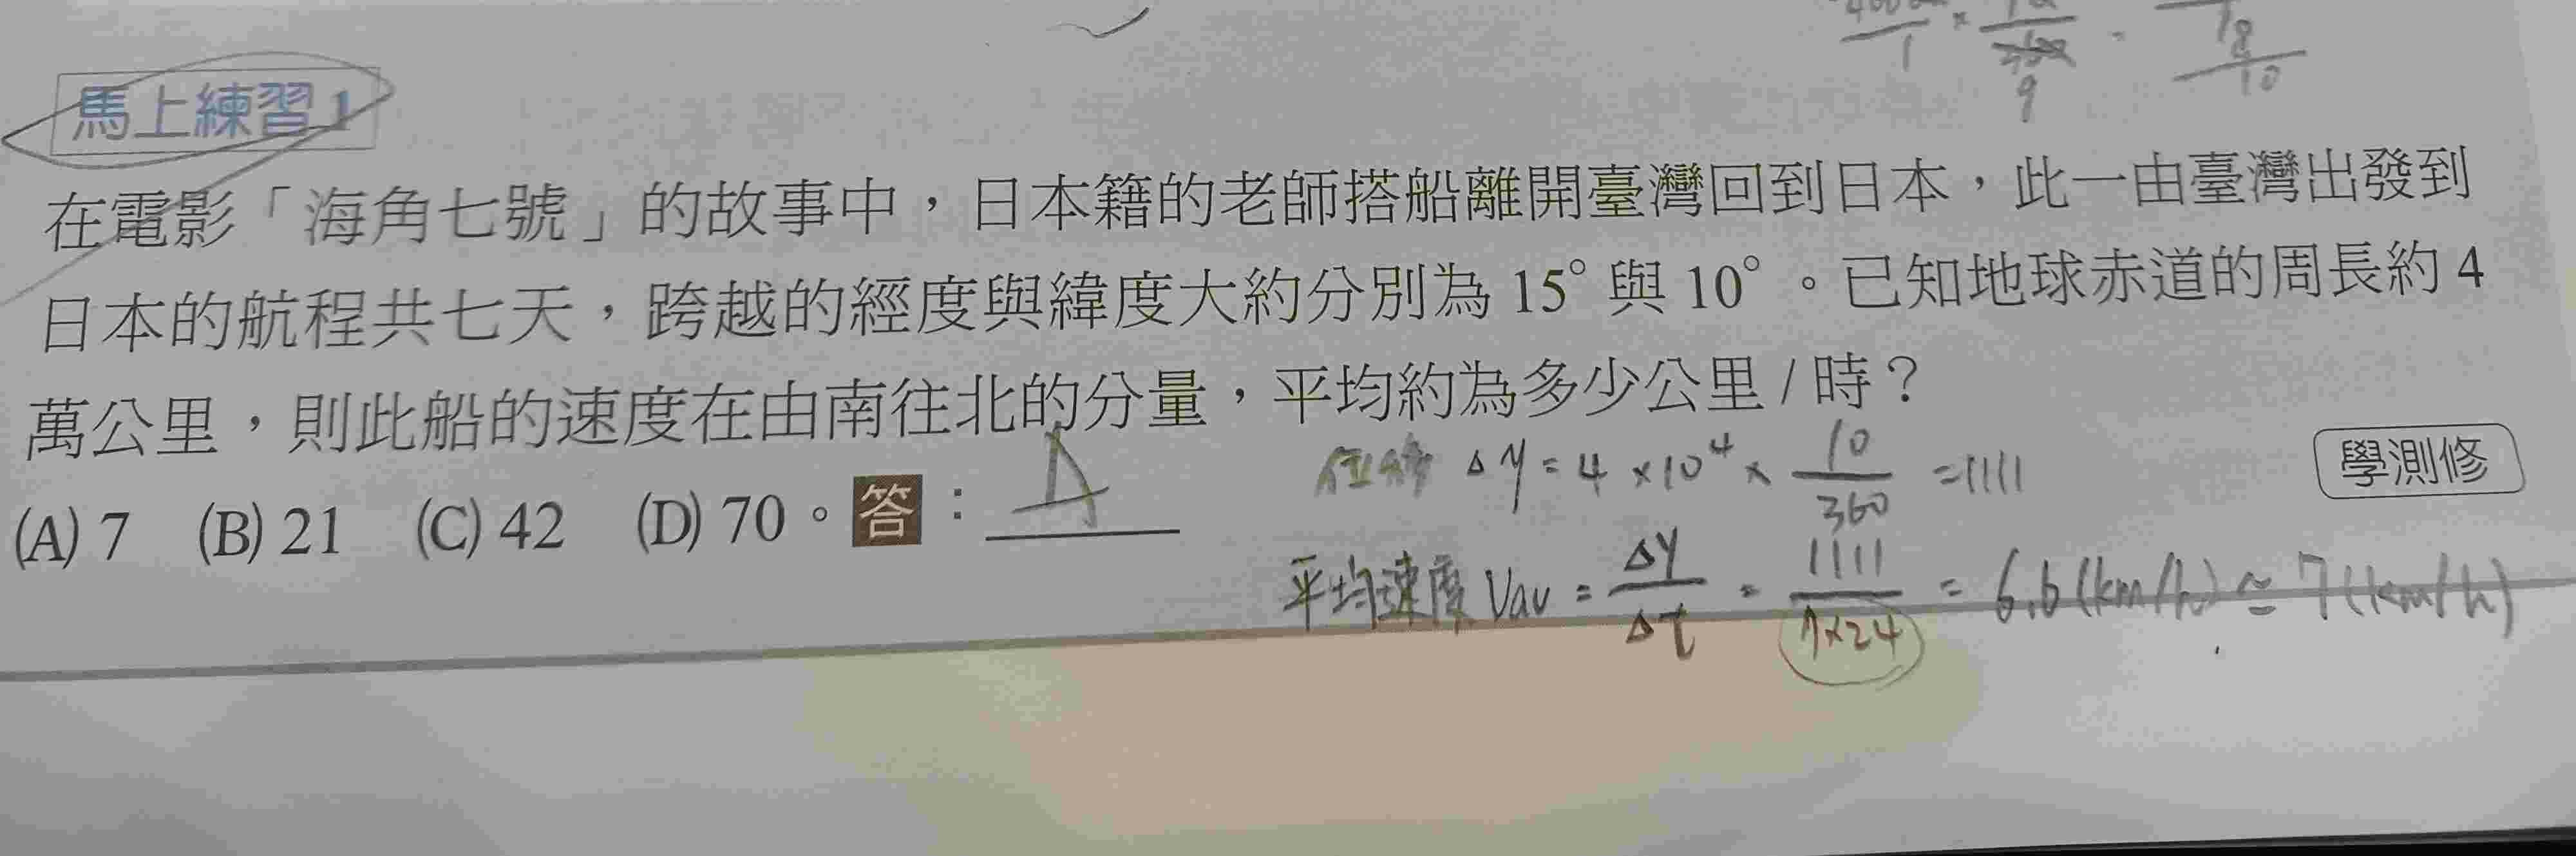 馬上練習 1
在電影「海角七號」的故事中，日本籍的老師搭船離開臺灣回到日本，此一由臺灣出發到
日本的航程共七天，跨越的經度與緯度大約分別為 15° 與 10°。已知地球赤道的周長約 4
萬公里，則此船的速度在由南往北的分量，平均約為多少公里 / 時？
學測修
(A) 7 (B) 21 (C) 42 (D) 70。答：A
位移 Δy = 4 × 10⁴ × 10/360 = 1111
平均速度 Vav = Δy/Δt = 1111/7×24 = 6.6 (km/h) ≈ 7 (km/h)